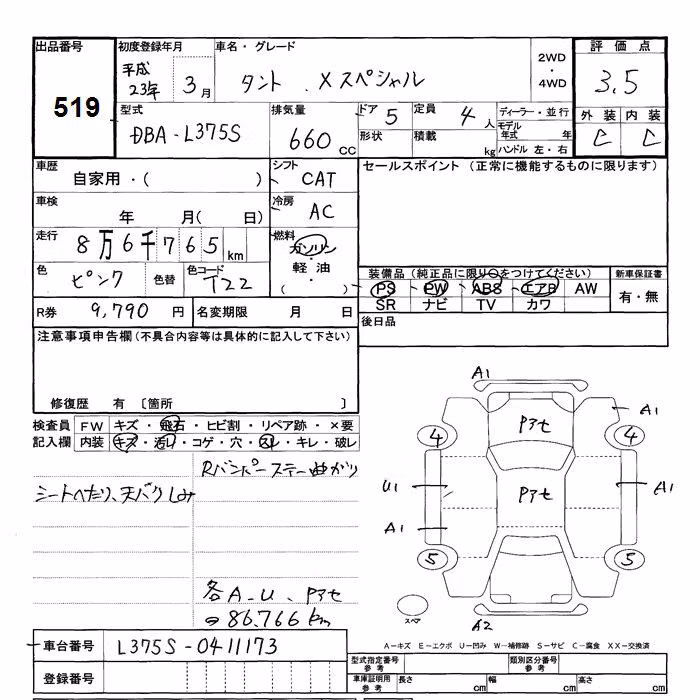 出品番号 初度登録年月 車名・グレード 2WD・4WD 評価点
519 平成23年 3月 タント Xスペシャル 3.5
型式 排気量 ドア 5 定員 4人 ディーラー・並行 外装 内装
DBA-L375S 660cc 形状 積載 kg モデル年式 年 C C
ハンドル 左・右
車歴 シフト セールスポイント (正常に機能するものに限ります)
自家用・( ) CAT
車検 冷房
年 月( 日) AC
走行 8万6千765km 燃料 ガソリン
軽油
・
( )
色 ピンク 色替 色コード T22
装備品 (純正品に限り○をつけてください) 新車保証書
PS PW ABS エアB AW 有・無
SR ナビ TV カワ
R券 9,790円 名変期限 月 日 後日品
注意事項申告欄 (不具合内容等は具体的に記入して下さい)
修復歴 有 [箇所 ]
検査員 FW キズ・飛石・ヒビ割・リペア跡・×要
記入欄 内装 キズ・汚レ・コゲ・穴・スレ・キレ・破レ
Rバンパーステー曲がり
シートへたり、天バクしみ
各A.U、Pアセ
→86,766km
A1
Pアセ A1
4 4
U1 Pアセ A1
A1
5 5
スペア A2
車台番号 L375S-0411173
A-キズ E-エクボ U-凹み W-補修跡 S-サビ C-腐食 XX-交換済
登録番号 型式指定番号 参考 類別区分番号 参考
車庫証明用 参考 長さ cm 幅 cm 高さ cm